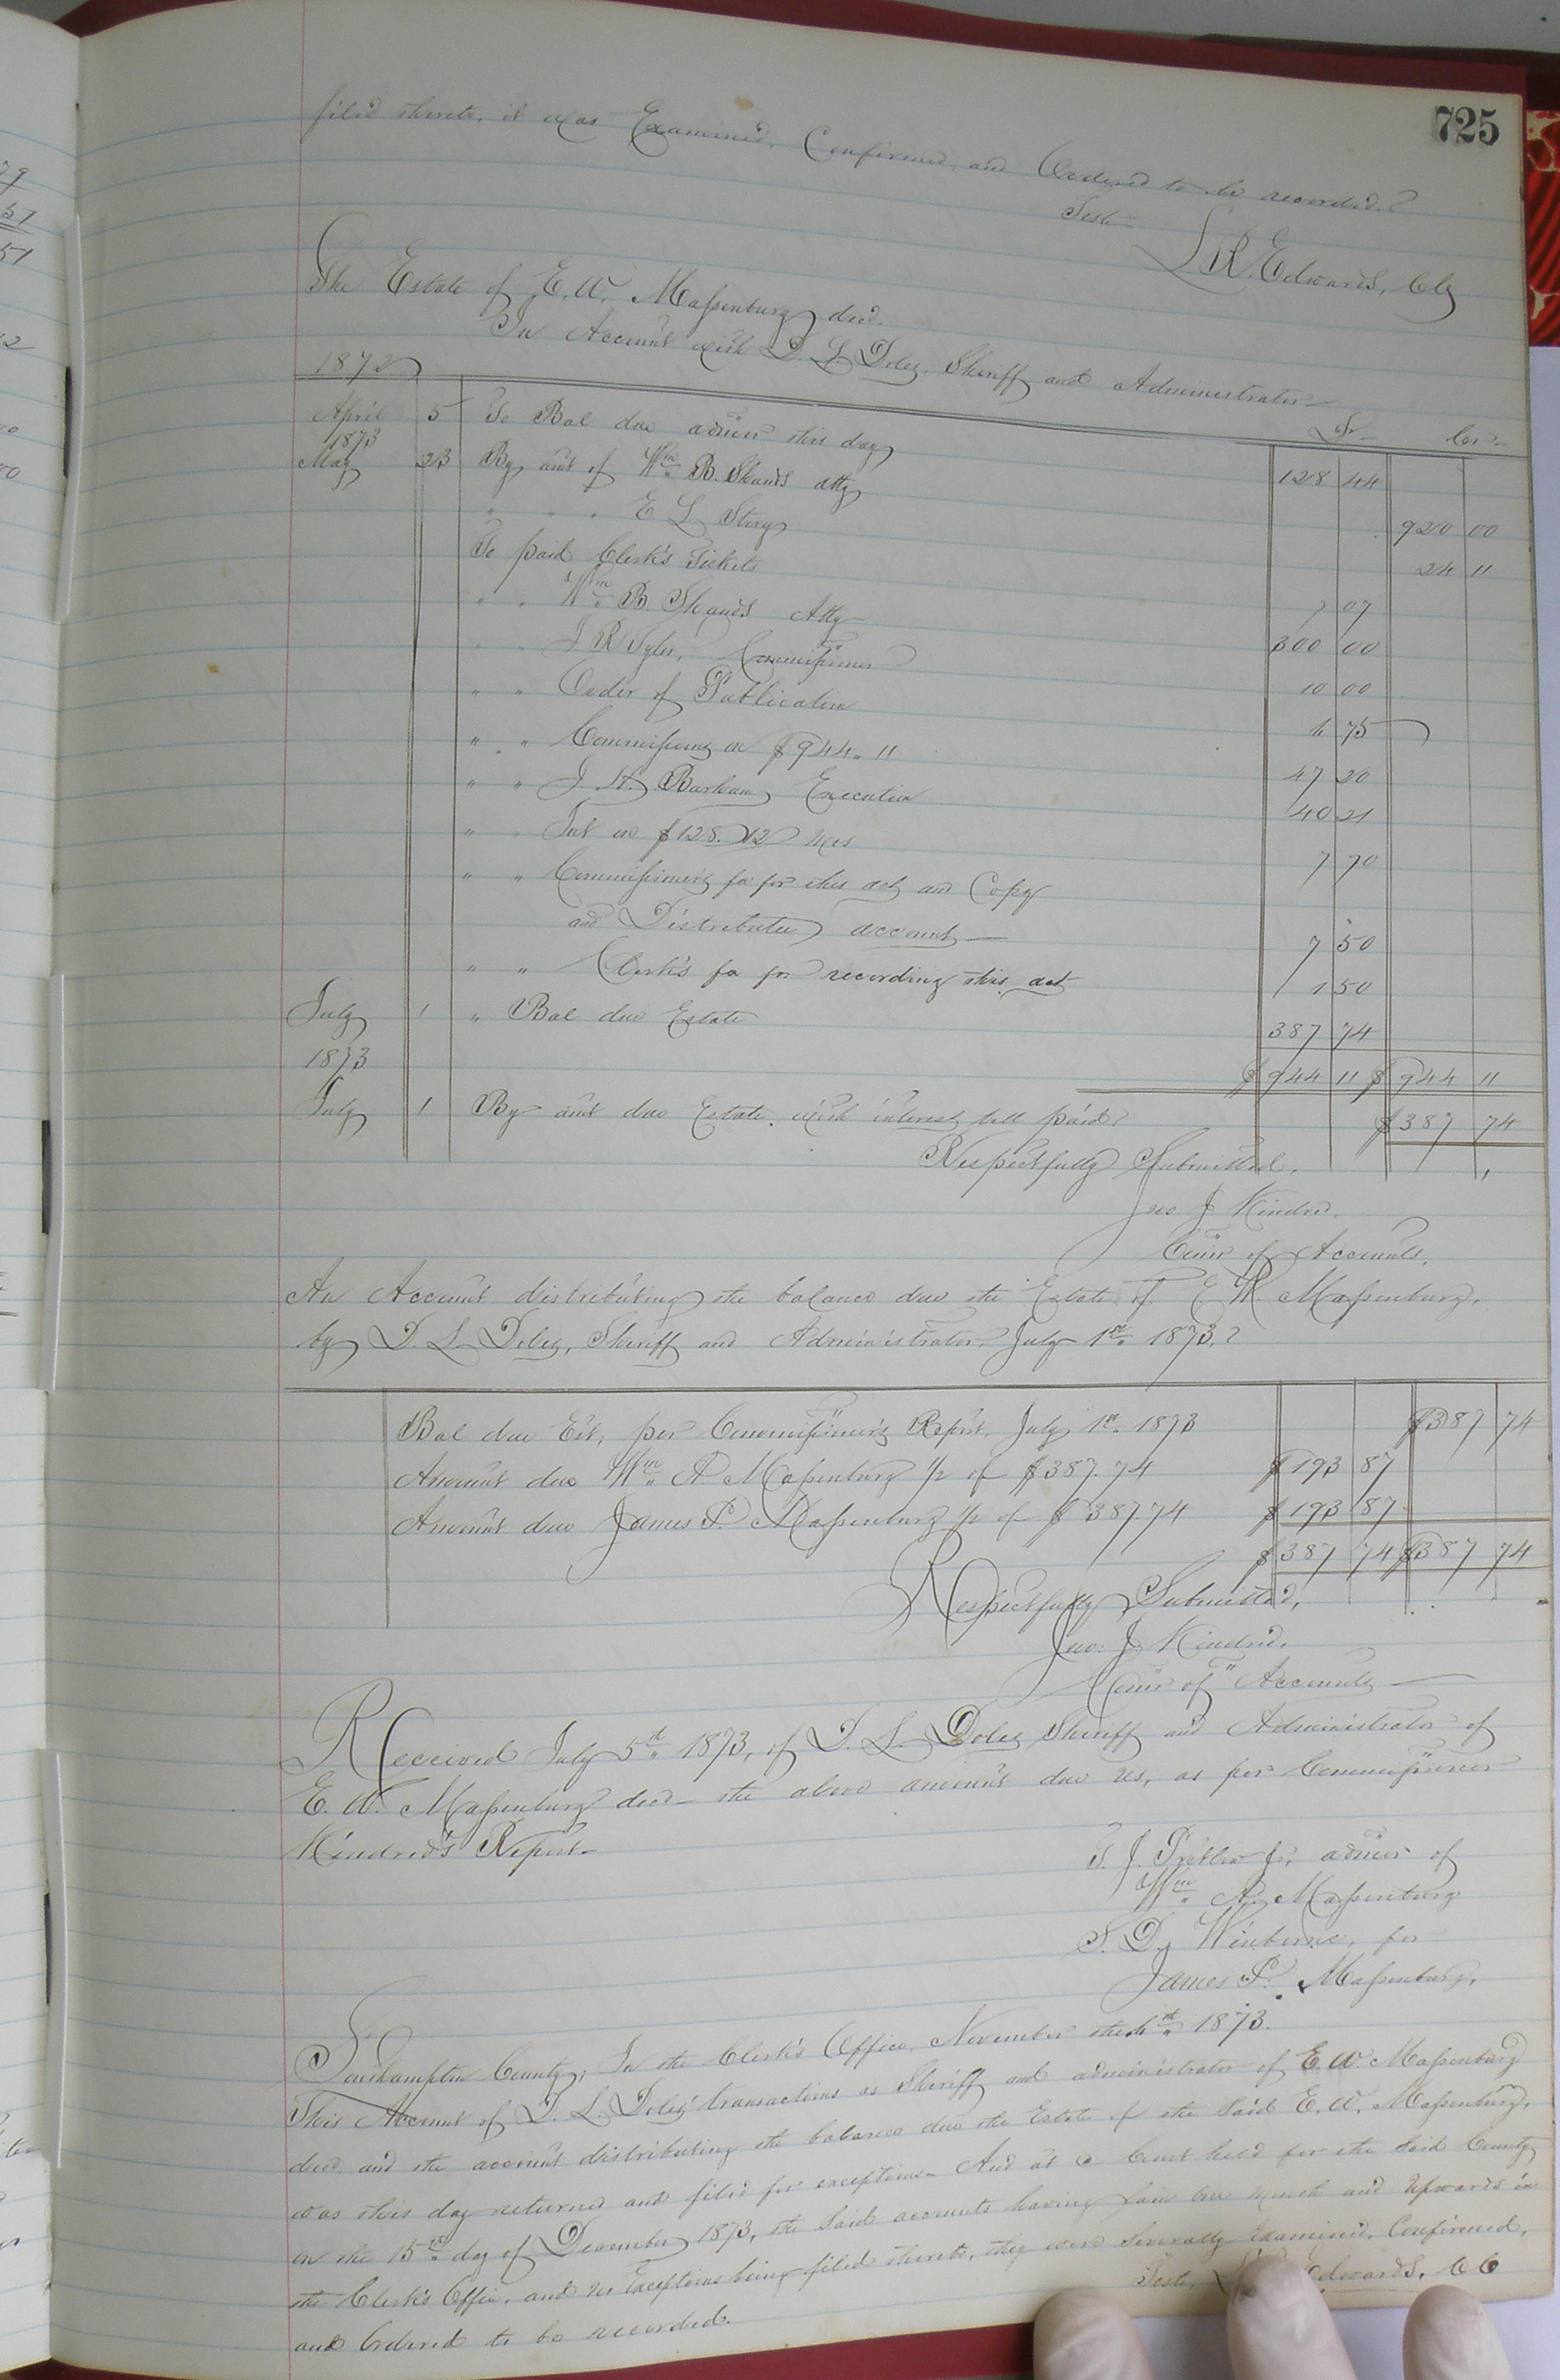 725
filed thereto, it was Examined, Confirmed, and Ordered to be recorded.
Teste
L. R. Edwards, Clk
The Estate of E. W. Massenburg decd.
In Account with D. L. Doley, Sheriff and Administrator
1872
Dr Cr
April 5 To Bal due admor this day 128 44
1873
May 23 By amt of Wm B. Shands atty 920 00
" " " E L Story 24 11
To paid Clerk's Tickets 7 07
" " Wm B Shands Atty 300 00
" " J R Tyler, Commissioner 10 00
" " Order of Publication 6 75
" " Commissions on $944.11 47 20
" " J. H. Barham Execution 40 21
" " Int on $128. 12 mos 7 70
" " Commissioner's fee for this act and Copy
and Distributee account 7 50
" " Clerk's fee for recording this act 1 50
July 1 " Bal due Estate 387 74
1873 $944 11 $944 11
July 1 By amt due Estate with interest till paid $387 74
Respectfully Submitted,
Jno. J. Kindred,
Comr of Accounts.
An Account distributing the balance due the Estate of E W. Massenburg,
by D. L. Doley, Sheriff and Administrator. July 1st 1873.
Bal due Est, per Commissioner's Report. July 1st 1873 $387 74
Amount due Wm A. Massenburg 1/2 of $387.74 $193 87
Amount due James P. Massenburg 1/2 of $387.74 $193 87
$387 74 $387 74
Respectfully Submitted,
Jno. J. Kindred,
Comr of Accounts
Received July 5th 1873, of D. L. Doley Sheriff and Administrator of
E. W. Massenburg decd the above amount due us, as per Commissioner
Kindred's Report
T. J. Pretlow Jr, admor of
Wm A. Massenburg
S. D. Winborne, for
James P. Massenburg,
Southampton County; In the Clerk's Office, November the 1873.
This Account of D. L. Doley' transactions as Sheriff and administrator of E. W. Massenburg
decd. and the account distributing the balance due the Estate of the said E. W. Massenburg,
was this day returned and filed for exceptions And at a Court held for the said County
on the 15th day of December 1873, the said accounts having lain one month and upwards in
the Clerk's Office, and no Exceptions being filed thereto, they were severally Examined, Confirmed,
and Ordered to be recorded.
Teste, Edwards, C C